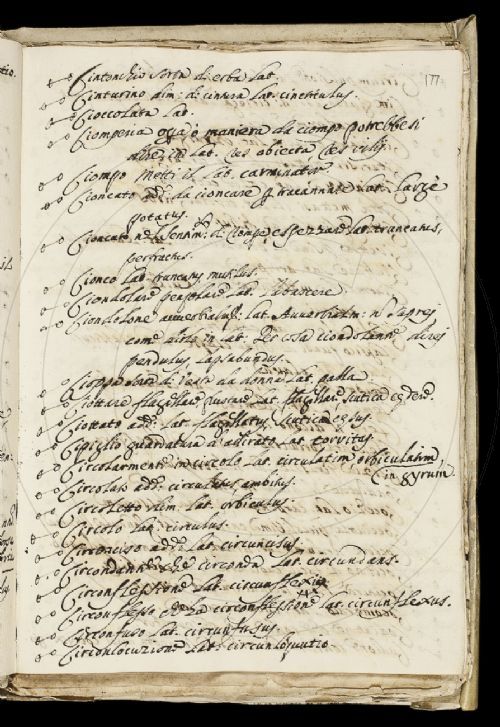 177
Cintonchio sorta di erba lat.
Cinturino dim: di cintura lat. cinctulus.
Cioccolata lat.
Ciomperia o maniera da ciompo potrebbesi
dire in lat. res obiecta res vilis.
Ciompo metti il lat. carminator
Cioncato add: da cioncare p tracannare lat. large
potatus.
Cioncato nel sentim: di rompe e spezzare lat. truncatus,
perfractus.
Cionco lat. truncatus mutilus.
Ciondolare penzolare lat. labascere
Ciondolone avverbialm: lat. Avverbialm: n l'aprej
come dirlo in lat. Di cosa ciondolante direj
pendulus lapsabundus.
Cioppa sorta di veste da donna lat. palla
Ciottare flagellare lat. flagellare scutica cędere.
Ciottato add: lat. flagellatus scutica cęsus.
Cipiglio guardatura d'adirato lat. torvitas.
Circolarmente in circolo lat. circulatim orbiculatim
in gyrum.
Circolato add: circuitus ambitus.
Circoletto dim. lat. orbiculus.
Circolo lat. circulus.
Circonciso add: lat. circuncisus.
Circondante che circonda lat. circundans.
Circonflessione lat. circunflexio
Circonflesso circonflessione lat. circunflexus.
Circonfuso lat. circunfusus.
Circonlocuzione lat. circunloquutio